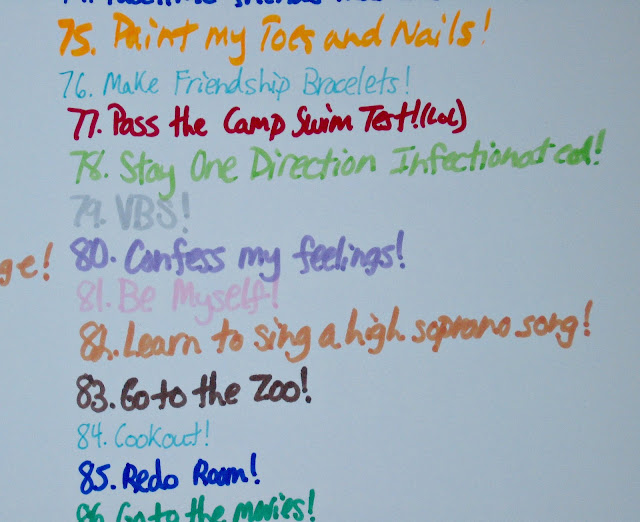 75. Paint my Toes and Nails!
76. Make Friendship Bracelets!
77. Pass the Camp Swim Test! (LoL)
78. Stay One Direction Infectionated!
79. VBS!
80. Confess my feelings!
ge!
81. Be Myself!
82. Learn to sing a high soprano song!
83. Go to the Zoo!
84. Cookout!
85. Redo Room!
86. Go to the movies!